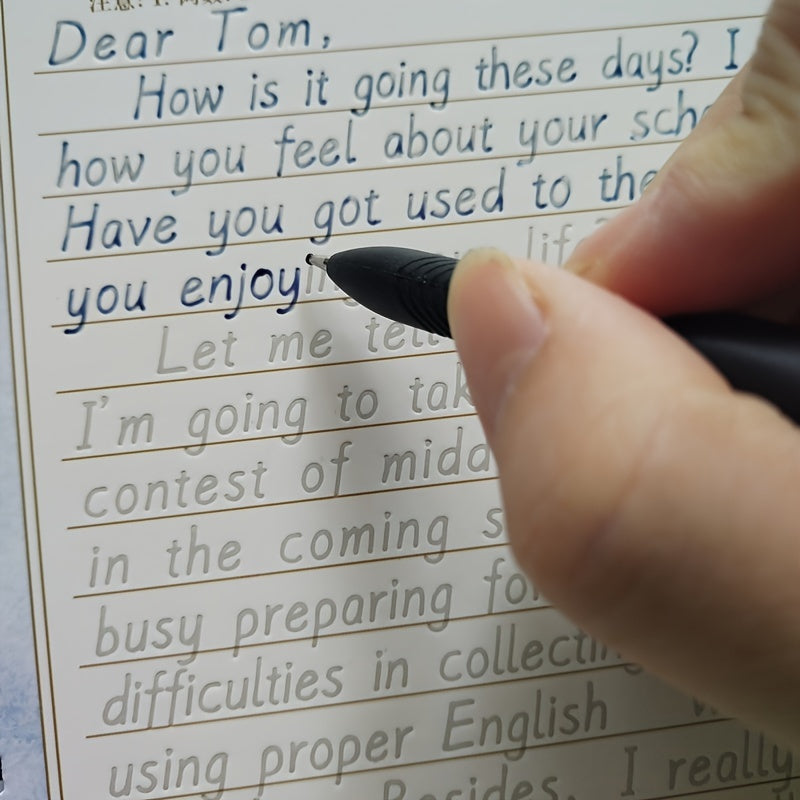 Dear Tom,
How is it going these days? I
how you feel about your
Have you got used to the
you enjoying
Let me tell
I'm going to
contest of
in the coming
busy preparing for
difficulties in collecting
using proper English
Besides, I really